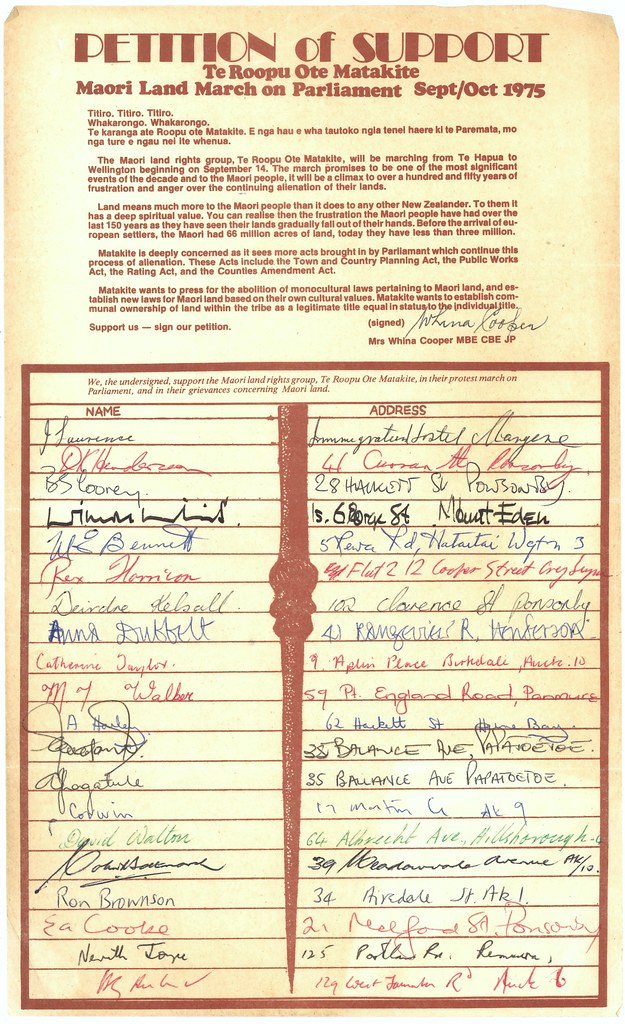 PETITION of SUPPORT
Te Roopu Ote Matakite
Maori Land March on Parliament Sept/Oct 1975
Titiro. Titiro. Titiro.
Whakarongo. Whakarongo.
Te karanga ate Roopu ote Matakite. E nga hau e wha tautoko ngia tenei haere ki te Paremata, mo
nga ture e ngau nei ite whenua.
The Maori land rights group, Te Roopu Ote Matakite, will be marching from Te Hapua to
Wellington beginning on September 14. The march promises to be one of the most significant
events of the decade and to the Maori people, it will be a climax to over a hundred and fifty years of
frustration and anger over the continuing alienation of their lands.
Land means much more to the Maori people than it does to any other New Zealander. To them it
has a deep spiritual value. You can realise then the frustration the Maori people have had over the
last 150 years as they have seen their lands gradually fall out of their hands. Before the arrival of eu-
ropean settlers, the Maori had 66 million acres of land, today they have less than three million.
Matakite is deeply concerned as it sees more acts brought in by Parliamant which continue this
process of alienation. These Acts include the Town and Country Planning Act, the Public Works
Act, the Rating Act, and the Counties Amendment Act.
Matakite wants to press for the abolition of monocultural laws pertaining to Maori land, and es-
tablish new laws for Maori land based on their own cultural values. Matakite wants to establish com-
munal ownership of land within the tribe as a legitimate title equal in status to the individual title.
Support us — sign our petition. (signed) Whina Cooper
Mrs Whina Cooper MBE CBE JP
We, the undersigned, support the Maori land rights group, Te Roopu Ote Matakite, in their protest march on
Parliament, and in their grievances concerning Maori land.
NAME ADDRESS
J Laurence Immigration Hostel Mangere
DK Henderson 41 Curran St Ponsonby
BS Cooney 28 HACKETT St PONSONBY.
15. George St Mount EDEN
W E Bennett Rd, Hataitai Wgtn 3
Rex Harrison Flat 2 12 Cooper Street Grey Lynn
Deirdre Kelsall. 102 Clarence St Ponsonby
Anna 41 R, HENDERSON
Catherine Taylor. 9. Aplin Place Birkdale, Auck. 10
M T Walker 59 Pt. England Road, Panmure
A 62 Hackett St Herne Bay.
35 BALLANCE AVE, PAPATOETOE.
35 BALLANCE AVE PAPATOETOE.
Corwin 17 Ak 9
David Walton 64 Albrecht Ave, Hillsborough-
39 Meadowvale Avenue Ak/10.
Ron Brownson 34 Airedale St. Ak 1.
Ea Cooke 21 St. Ponsonby
125 Portland Rd. Remuera,
129 West Rd Auck 6